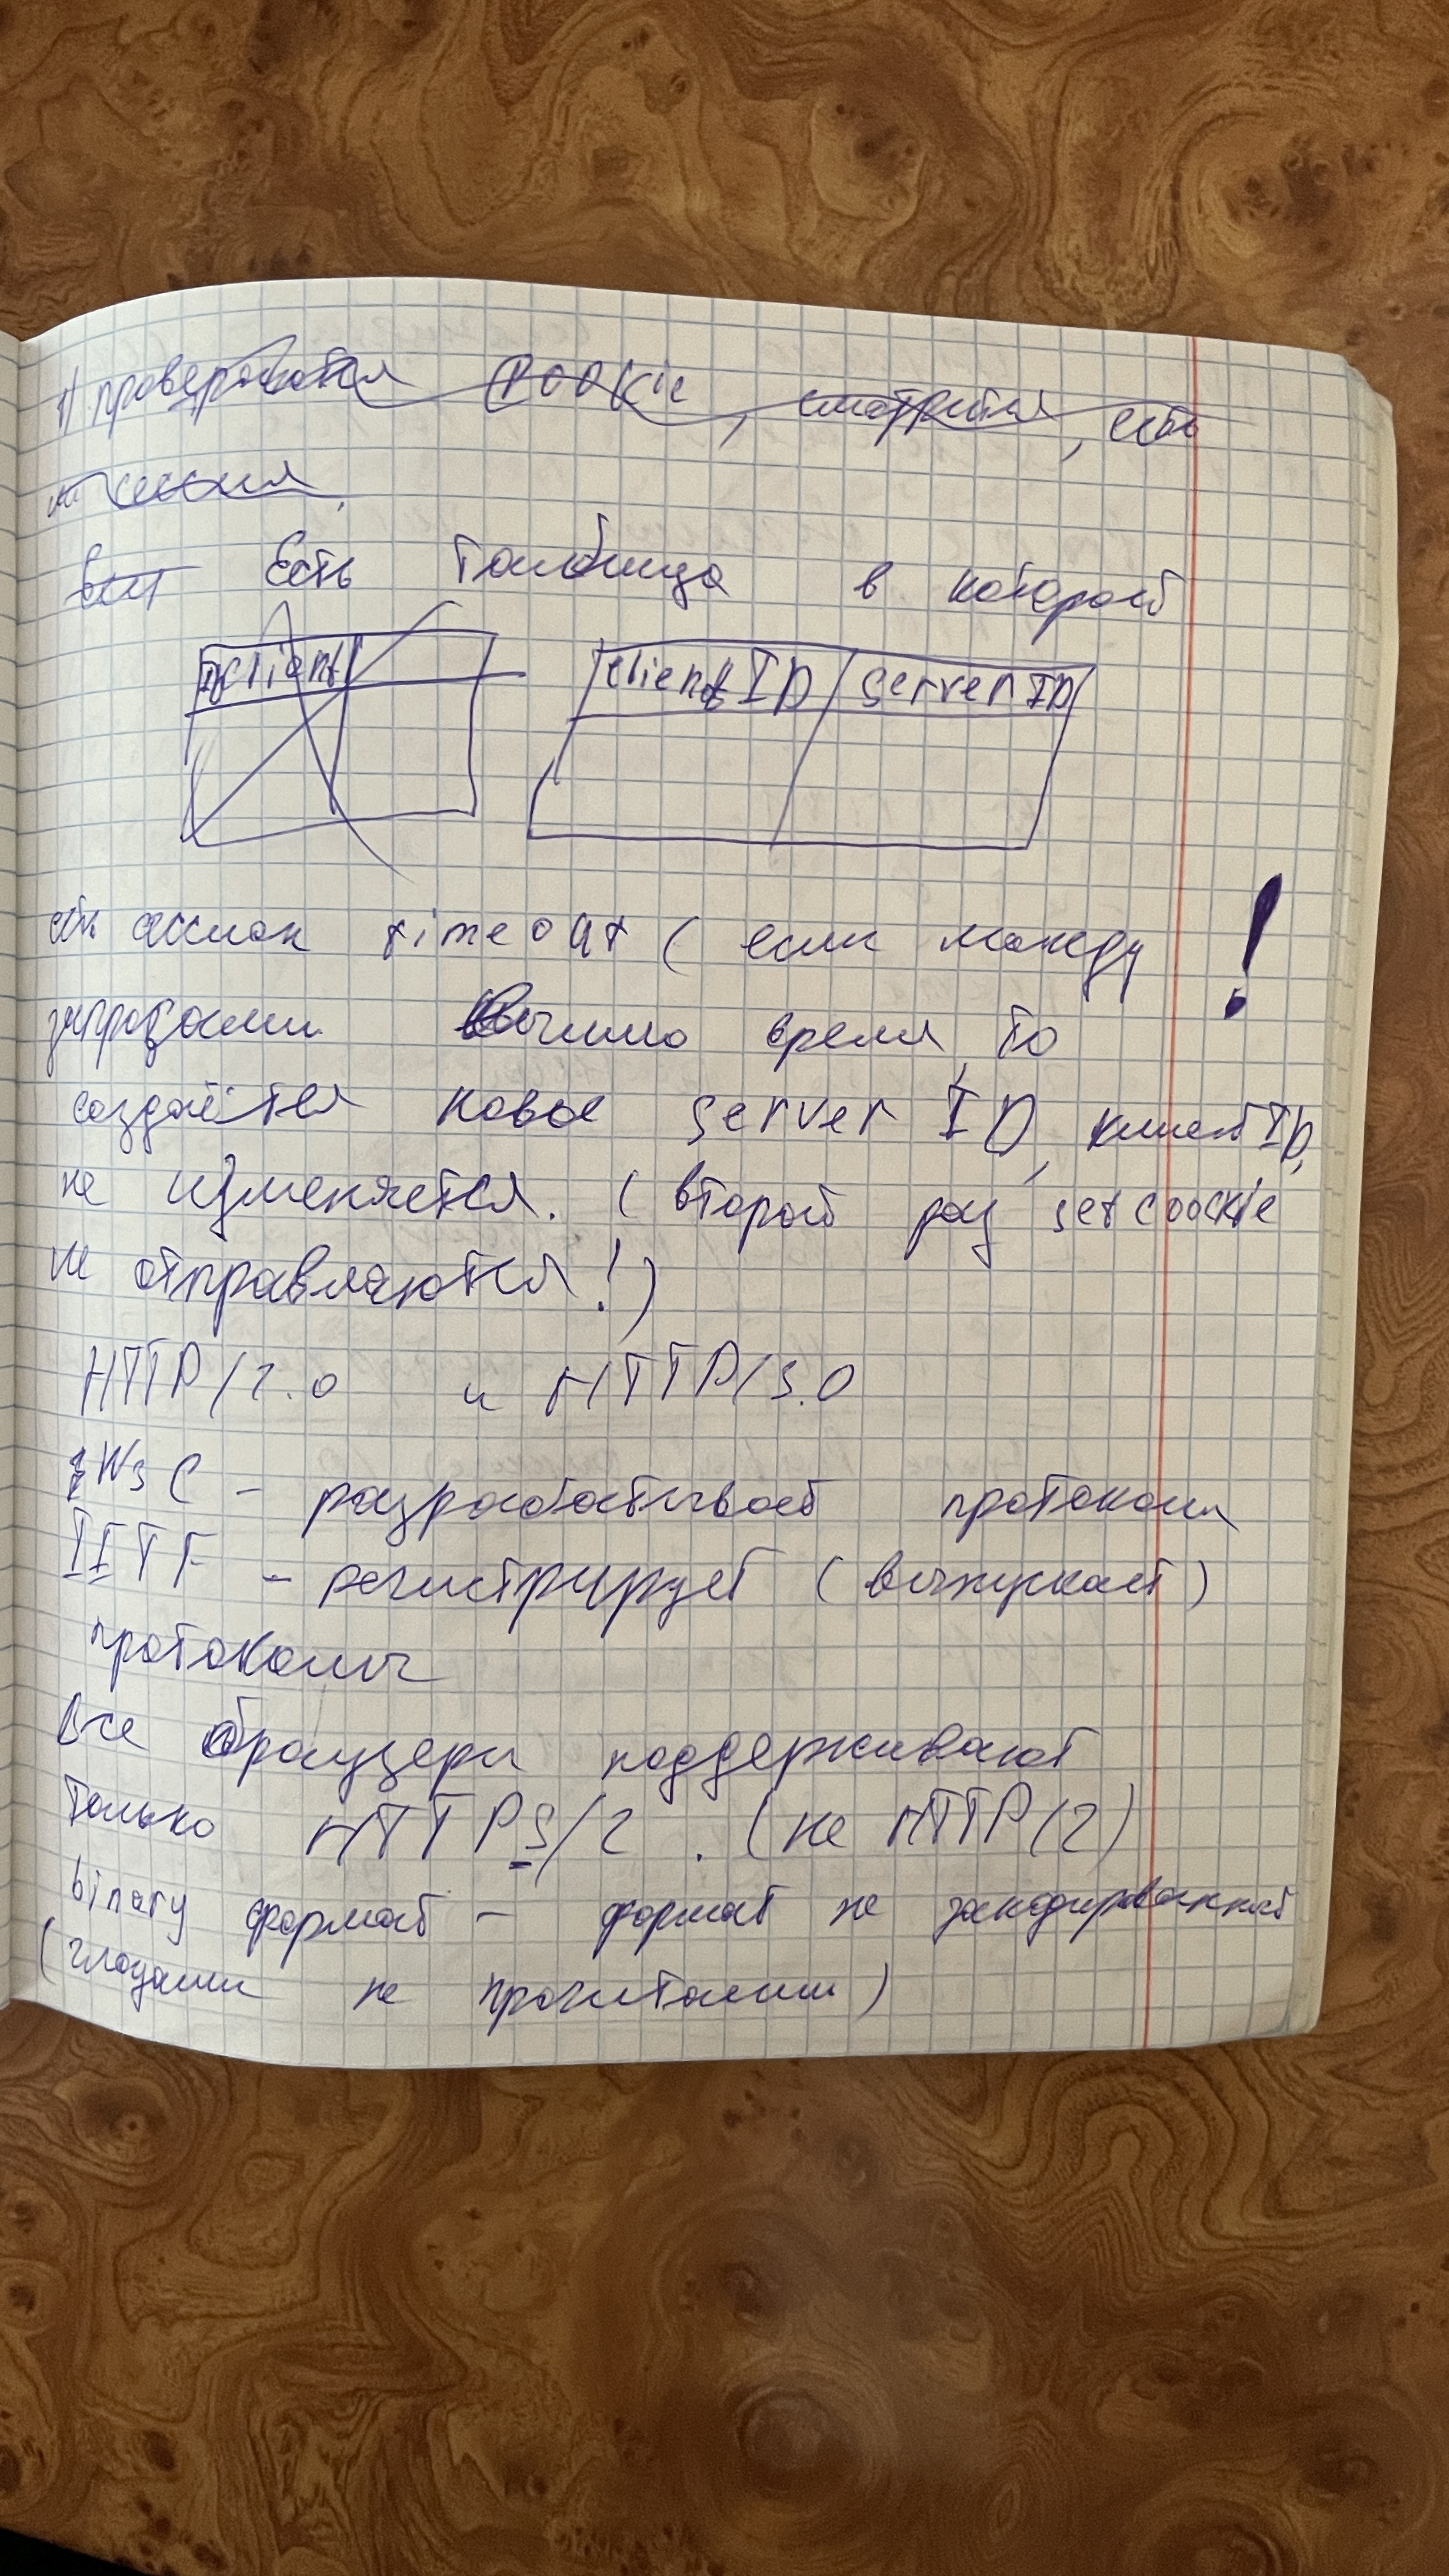 1) проверяются cookie, смотрится, есть
ли сессия.
Есть таблица в которой
client
client ID server ID
есть сессион timeout ( если между !
запросами вышло время, то
создаётся новое server ID, клиент ID,
не изменяется. ( второй раз set coockie
не отправляются! )
HTTP/2.0 и HTTP/3.0
W3C - разрабатывает протоколы
IETF - регистрирует ( выпускает )
протоколы
Все браузеры поддерживают
только HTTPS/2 . (не HTTP/2)
binary формат - формат не закодированный
(глазами не прочитаеш)